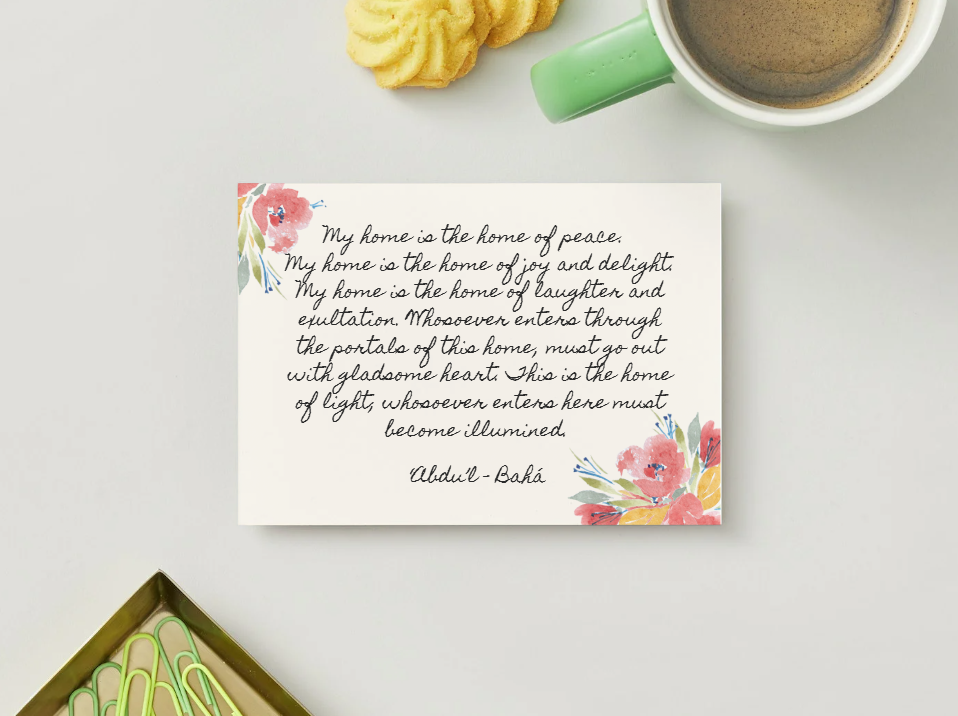 My home is the home of peace.
My home is the home of joy and delight.
My home is the home of laughter and
exultation. Whosoever enters through
the portals of this home, must go out
with gladsome heart. This is the home
of light; whosoever enters here must
become illumined.
'Abdu'l - Bahá